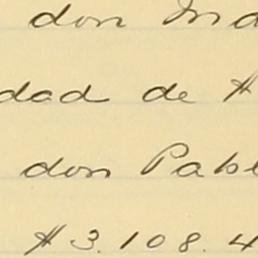 don Ma
dad de $
don Pabl
$3.108.4